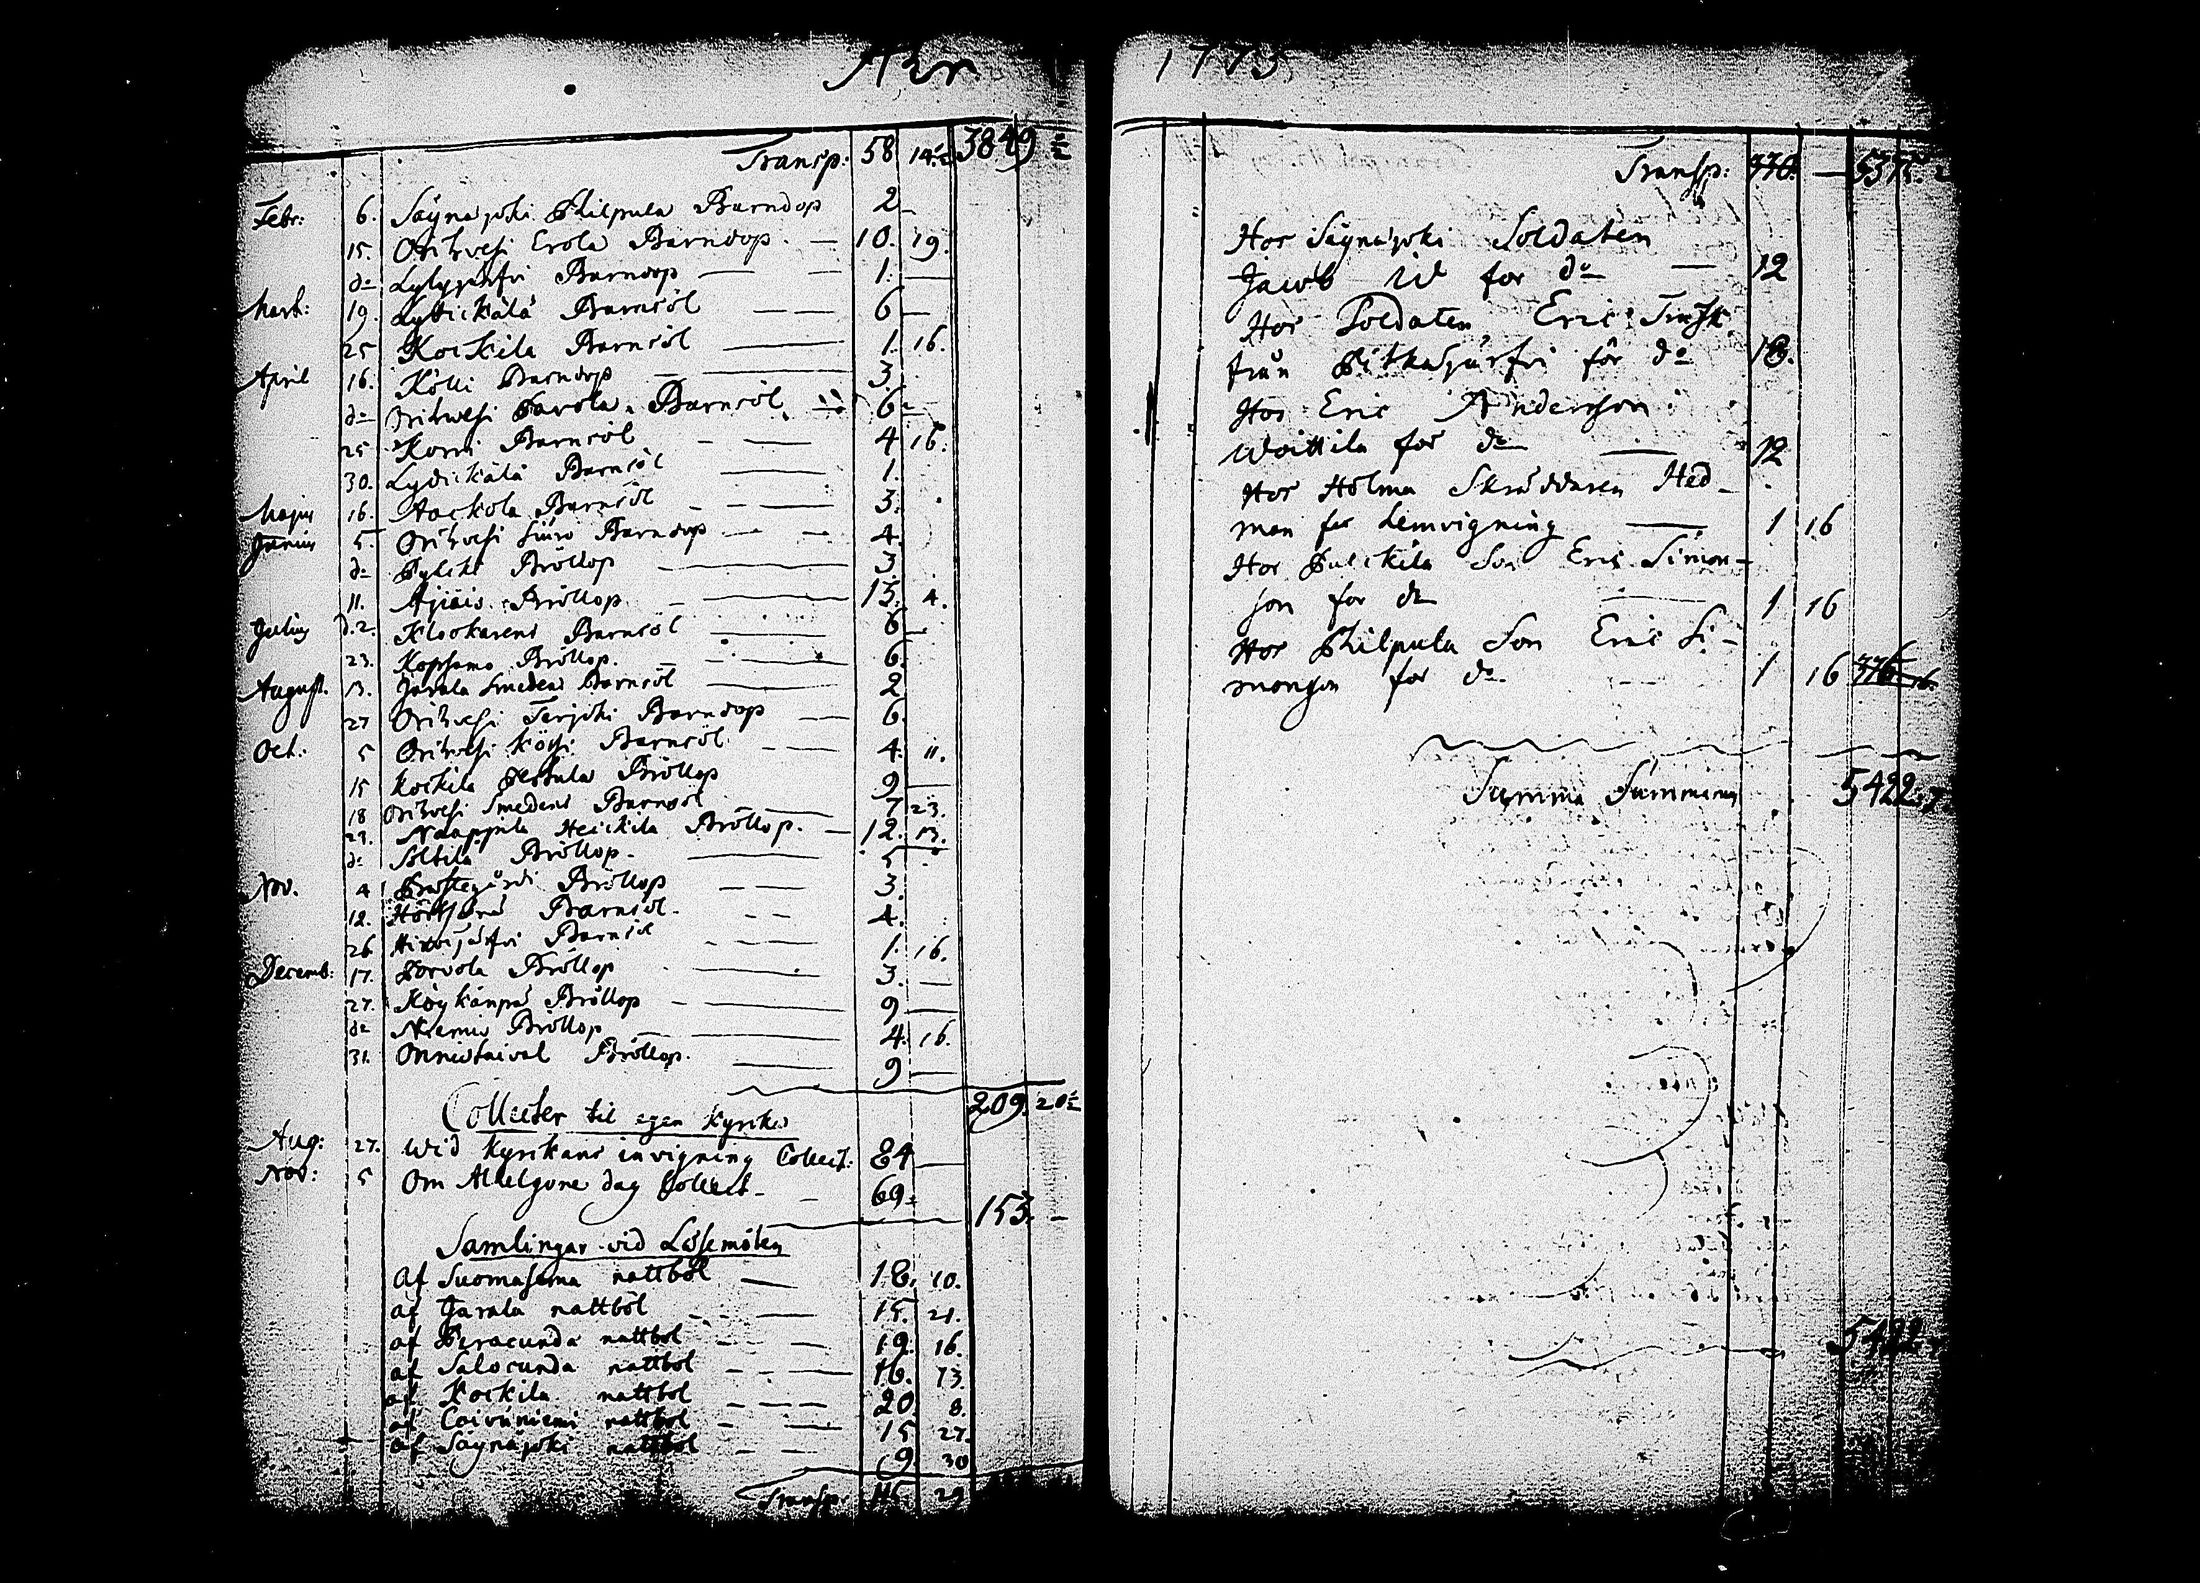 Åhr
Transp: 58 14.½ 3849
Febr: 6. Säynäjoki Philpula Barndop 2 —
15. Orihvesi Erola Barndop. — 10. 19.
do Lylyjärfvi Barndop — — 1. —
Mart: 19. Lydickälä Barnsöl — — 6 —
25 Kockila Barnsöl — 1. 16.
April 16. Kölli Barndop — — 3
do Orihvesi Pavola Barnsöl — 6 —
25 Korri Barnsöl — — 4 16.
30. Lydickälä Barnsöl — 1.
Majus 16. Aackola Barnsöl — — 3.
Junius 5. Orihvesi Barndop — — 4.
do Pylckö Bröllop — 3
11. Äijäis Bröllop — — 15. 4.
Julius d.2. Klockarens Barnsöl — 6 —
23. Kopsamo Bröllop. — — 6.
August. 13. Javala Smedens Barnsöl — 2
27 Orihvesi Terjoki Barndop — 6.
Oct: 5 Orihvesi Barnsöl — — 4. 11.
15 Kockila Bröllop 9 —
18 Orihvesi Smedens Barnsöl — 7 23.
29. Naappila Heickila Bröllop. — 12. 13.
do Söltilä Bröllop — 5
Nov. 4 Prästegårds Bröllop — — 3.
12. Barnsöl — — 4.
26 Barnsöl — — 1. 16.
Decemb: 17. Porvola Bröllop — 3. —
27. Köykänpää Bröllop — — 9 —
do Niemis Bröllop — — 4. 16.
31. Onnistaival Bröllop. — 9 —
209. 20½
Collecter til egen Kyrka
Aug: 27. Wid Kyrkans invigning Collect: 84 —
Nov: 5 Om Allelgona dag Collect — — 69 —
153. —
Samlingar vid Läsemöten
Af Suomasema nattböl — 18. 10.
af Javala nattböl — — 15. 21.
af Peracunda nattböl — — 19. 16.
af Salocunda nattböl — — 16. 13.
af Kockila nattböl — — 20 8.
af Coivuniemi nattböl — — 15 27.
af Säynäjoki nattböl — — 9. 30
Transp: 115. 29
1775
Transp: 770. — 5375.
Hos Säynäjoki Soldaten
Jacob Id för do — 12
Hos Soldaten Eric Frisk
från Pitkäjärfvi för do 18.
Hos Eric Andersson
Woittila för do — 12
Hos Holma Skräddaren Hed-
man för hemvigning — 1 16
Hos Pulckila Son Eric Simon-
son för do — 1 16
Hos Philpula Son Eric Si-
monson för do. 1 16
Summa Summarum 5422.
5422.